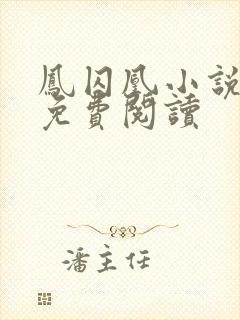 鳳囚凰小說
免費閱讀
潘主任